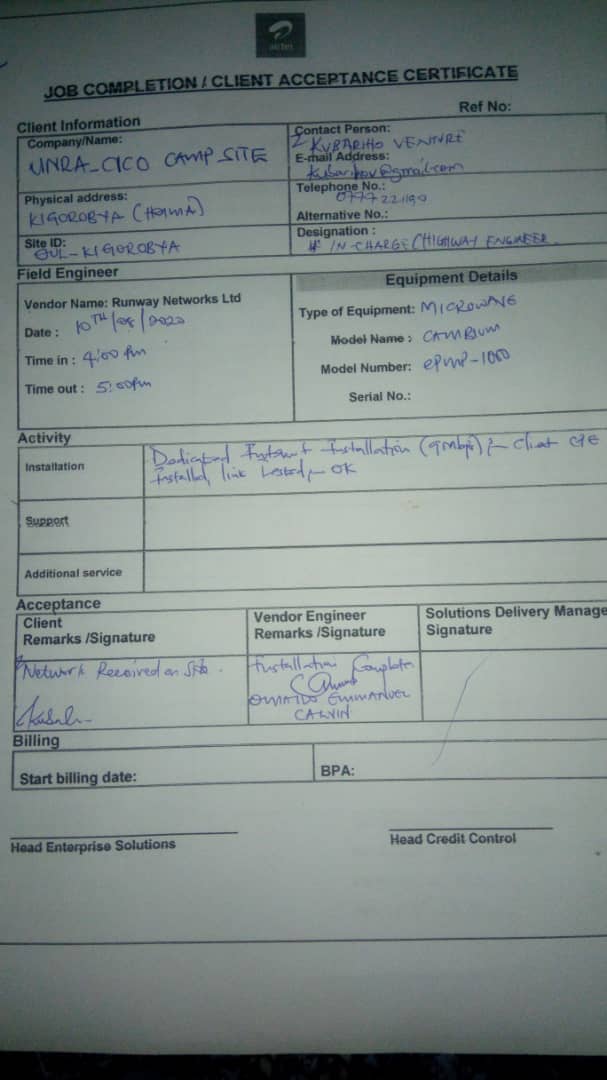 airtel
JOB COMPLETION / CLIENT ACCEPTANCE CERTIFICATE
Ref No:
Client Information
Company/Name:
UNRA-CICO CAMP SITE
Contact Person:
KUBARIHO VENTURE
E-mail Address:
kubarihov@gmail.com
Physical address:
KIGOROBYA (HOIMA)
Telephone No.:
0777221190
Alternative No.:
Site ID:
GUL-KIGOROBYA
Designation :
IN-CHARGE (HIGHWAY ENGINEER
Field Engineer
Equipment Details
Vendor Name: Runway Networks Ltd
Date : 10TH/08/2020
Time in : 4:00 pm
Time out : 5:00pm
Type of Equipment: MICROWAVE
Model Name : CAMBIUM
Model Number: ePMP-1000
Serial No.:
Activity
Installation
Dedicated Internet Installation (9mbps) :- Client CPE
Installed, link tested :- OK
Support
Additional service
Acceptance
Client
Remarks /Signature
Vendor Engineer
Remarks /Signature
Solutions Delivery Manage
Signature
Network Received on Site.
Installation Complete
EMMANUEL
CALVIN
Billing
Start billing date:
BPA:
Head Enterprise Solutions
Head Credit Control